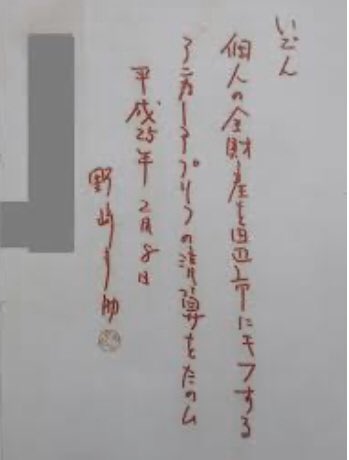 いごん
個人の全財産を田辺市にキフする
アンカー、アプリコの清算をたのム
平成25年2月8日
野崎幸助